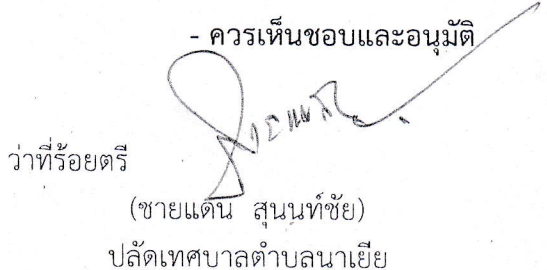 - ควรเห็นชอบและอนุมัติ
ว่าที่ร้อยตรี
(ชายแดน สุนนท์ชัย)
ปลัดเทศบาลตำบลนาเยีย